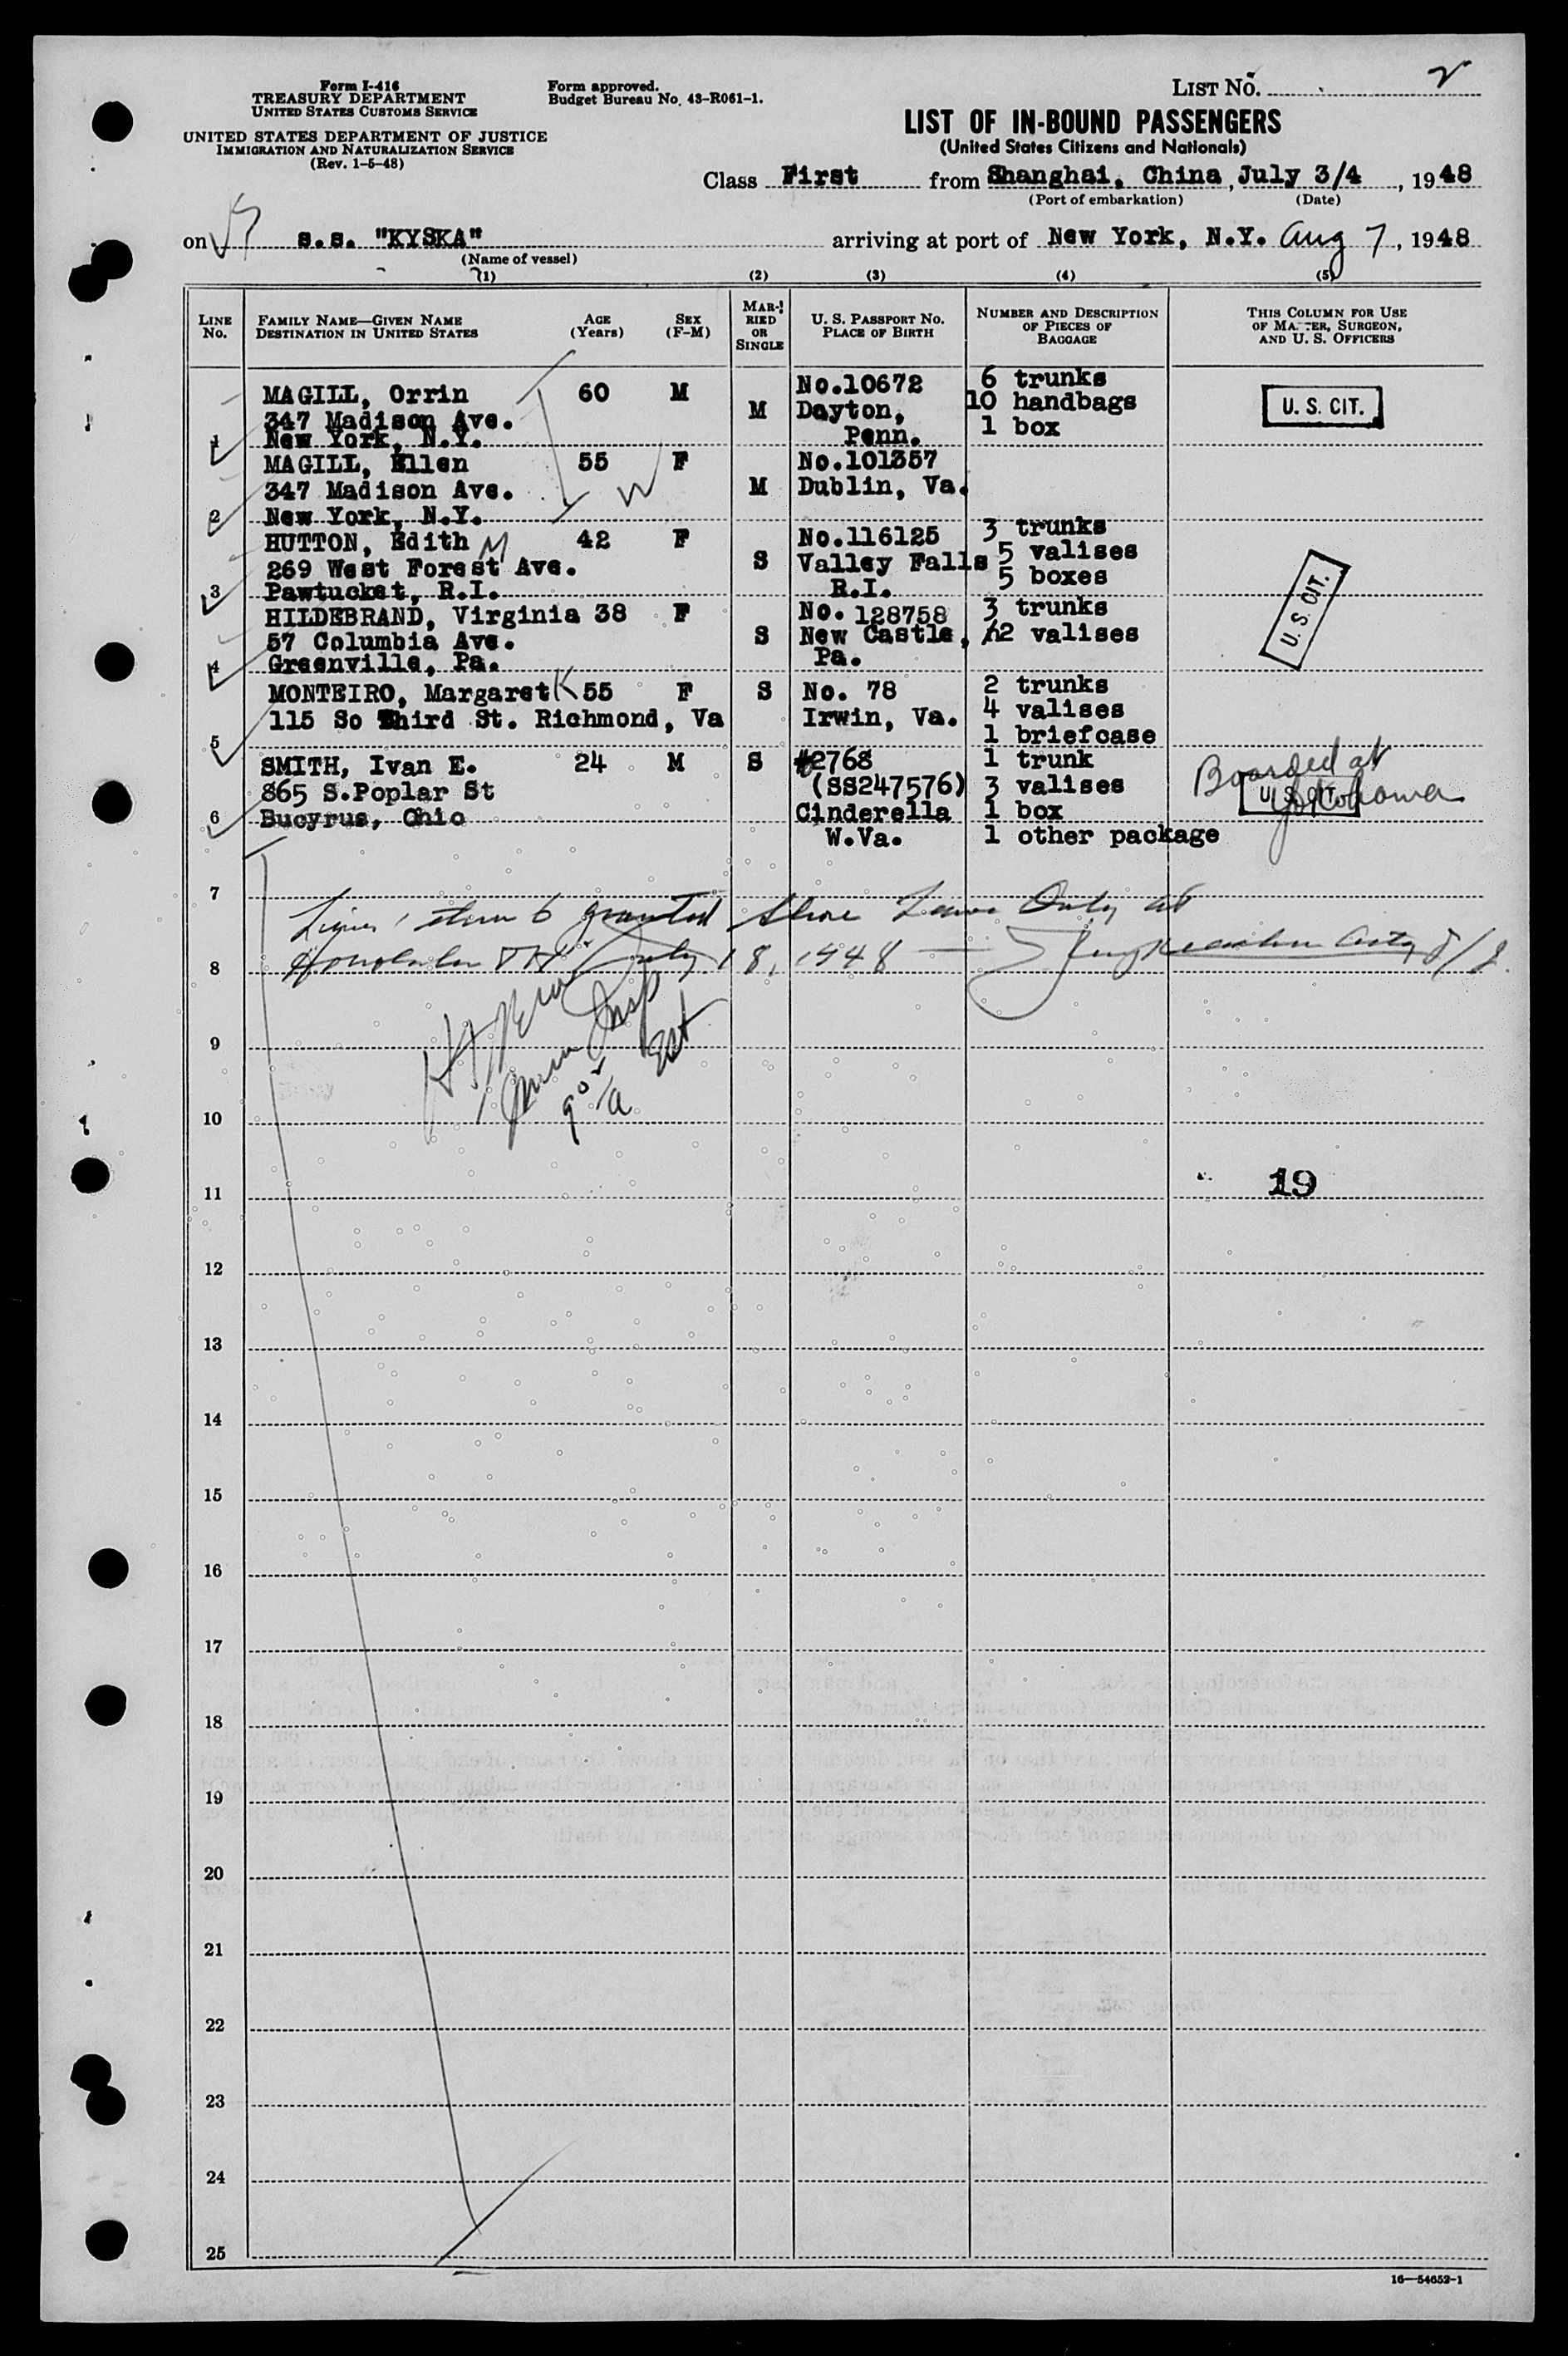 Form I-416
TREASURY DEPARTMENT
UNITED STATES CUSTOMS SERVICE
UNITED STATES DEPARTMENT OF JUSTICE
IMMIGRATION AND NATURALIZATION SERVICE
(Rev. 1-5-48)
Form approved.
Budget Bureau No. 43-R061-1.
LIST No. 2
LIST OF IN-BOUND PASSENGERS
(United States Citizens and Nationals)
Class First from Shanghai, China, July 3/4, 1948
(Port of embarkation) (Date)
on s.s. "KYSKA" arriving at port of New York, N.Y. Aug 7, 1948
(Name of vessel)
(1) (2) (3) (4) (5)
LINE No.
FAMILY NAME—GIVEN NAME
DESTINATION IN UNITED STATES
AGE (Years)
SEX (F-M)
MARRIED OR SINGLE
U. S. PASSPORT No.
PLACE OF BIRTH
NUMBER AND DESCRIPTION OF PIECES OF BAGGAGE
THIS COLUMN FOR USE OF MASTER, SURGEON, AND U. S. OFFICERS
MAGILL, Orrin 60 M No.10672 6 trunks
347 Madison Ave. M Dayton, 10 handbags U. S. CIT.
1 New York, N.Y. Penn. 1 box
MAGILL, Ellen 55 F No.101357
347 Madison Ave. W M Dublin, Va.
2 New York, N.Y.
HUTTON, Edith M 42 F No.116125 3 trunks
269 West Forest Ave. S Valley Falls 5 valises
3 Pawtucket, R.I. R.I. 5 boxes
HILDEBRAND, Virginia 38 F No. 128758 3 trunks U. S. CIT.
57 Columbia Ave. S New Castle, 2 valises
4 Greenville, Pa. Pa.
MONTEIRO, Margaret K 55 F S No. 78 2 trunks
115 So Third St. Richmond, Va Irwin, Va. 4 valises
5 1 briefcase
SMITH, Ivan E. 24 M S #2768 1 trunk Boarded at
865 S.Poplar St (SS247576) 3 valises U. S. CIT. Yokohama
6 Bucyrus, Ohio Cinderella 1 box
W.Va. 1 other package
7
Lines 1 thru 6 granted Shore Leave Only at
8 Honolulu TH July 18, 1948
Imm Insp
9 Est
10
11 19
12
13
14
15
16
17
18
19
20
21
22
23
24
25
16—54652-1